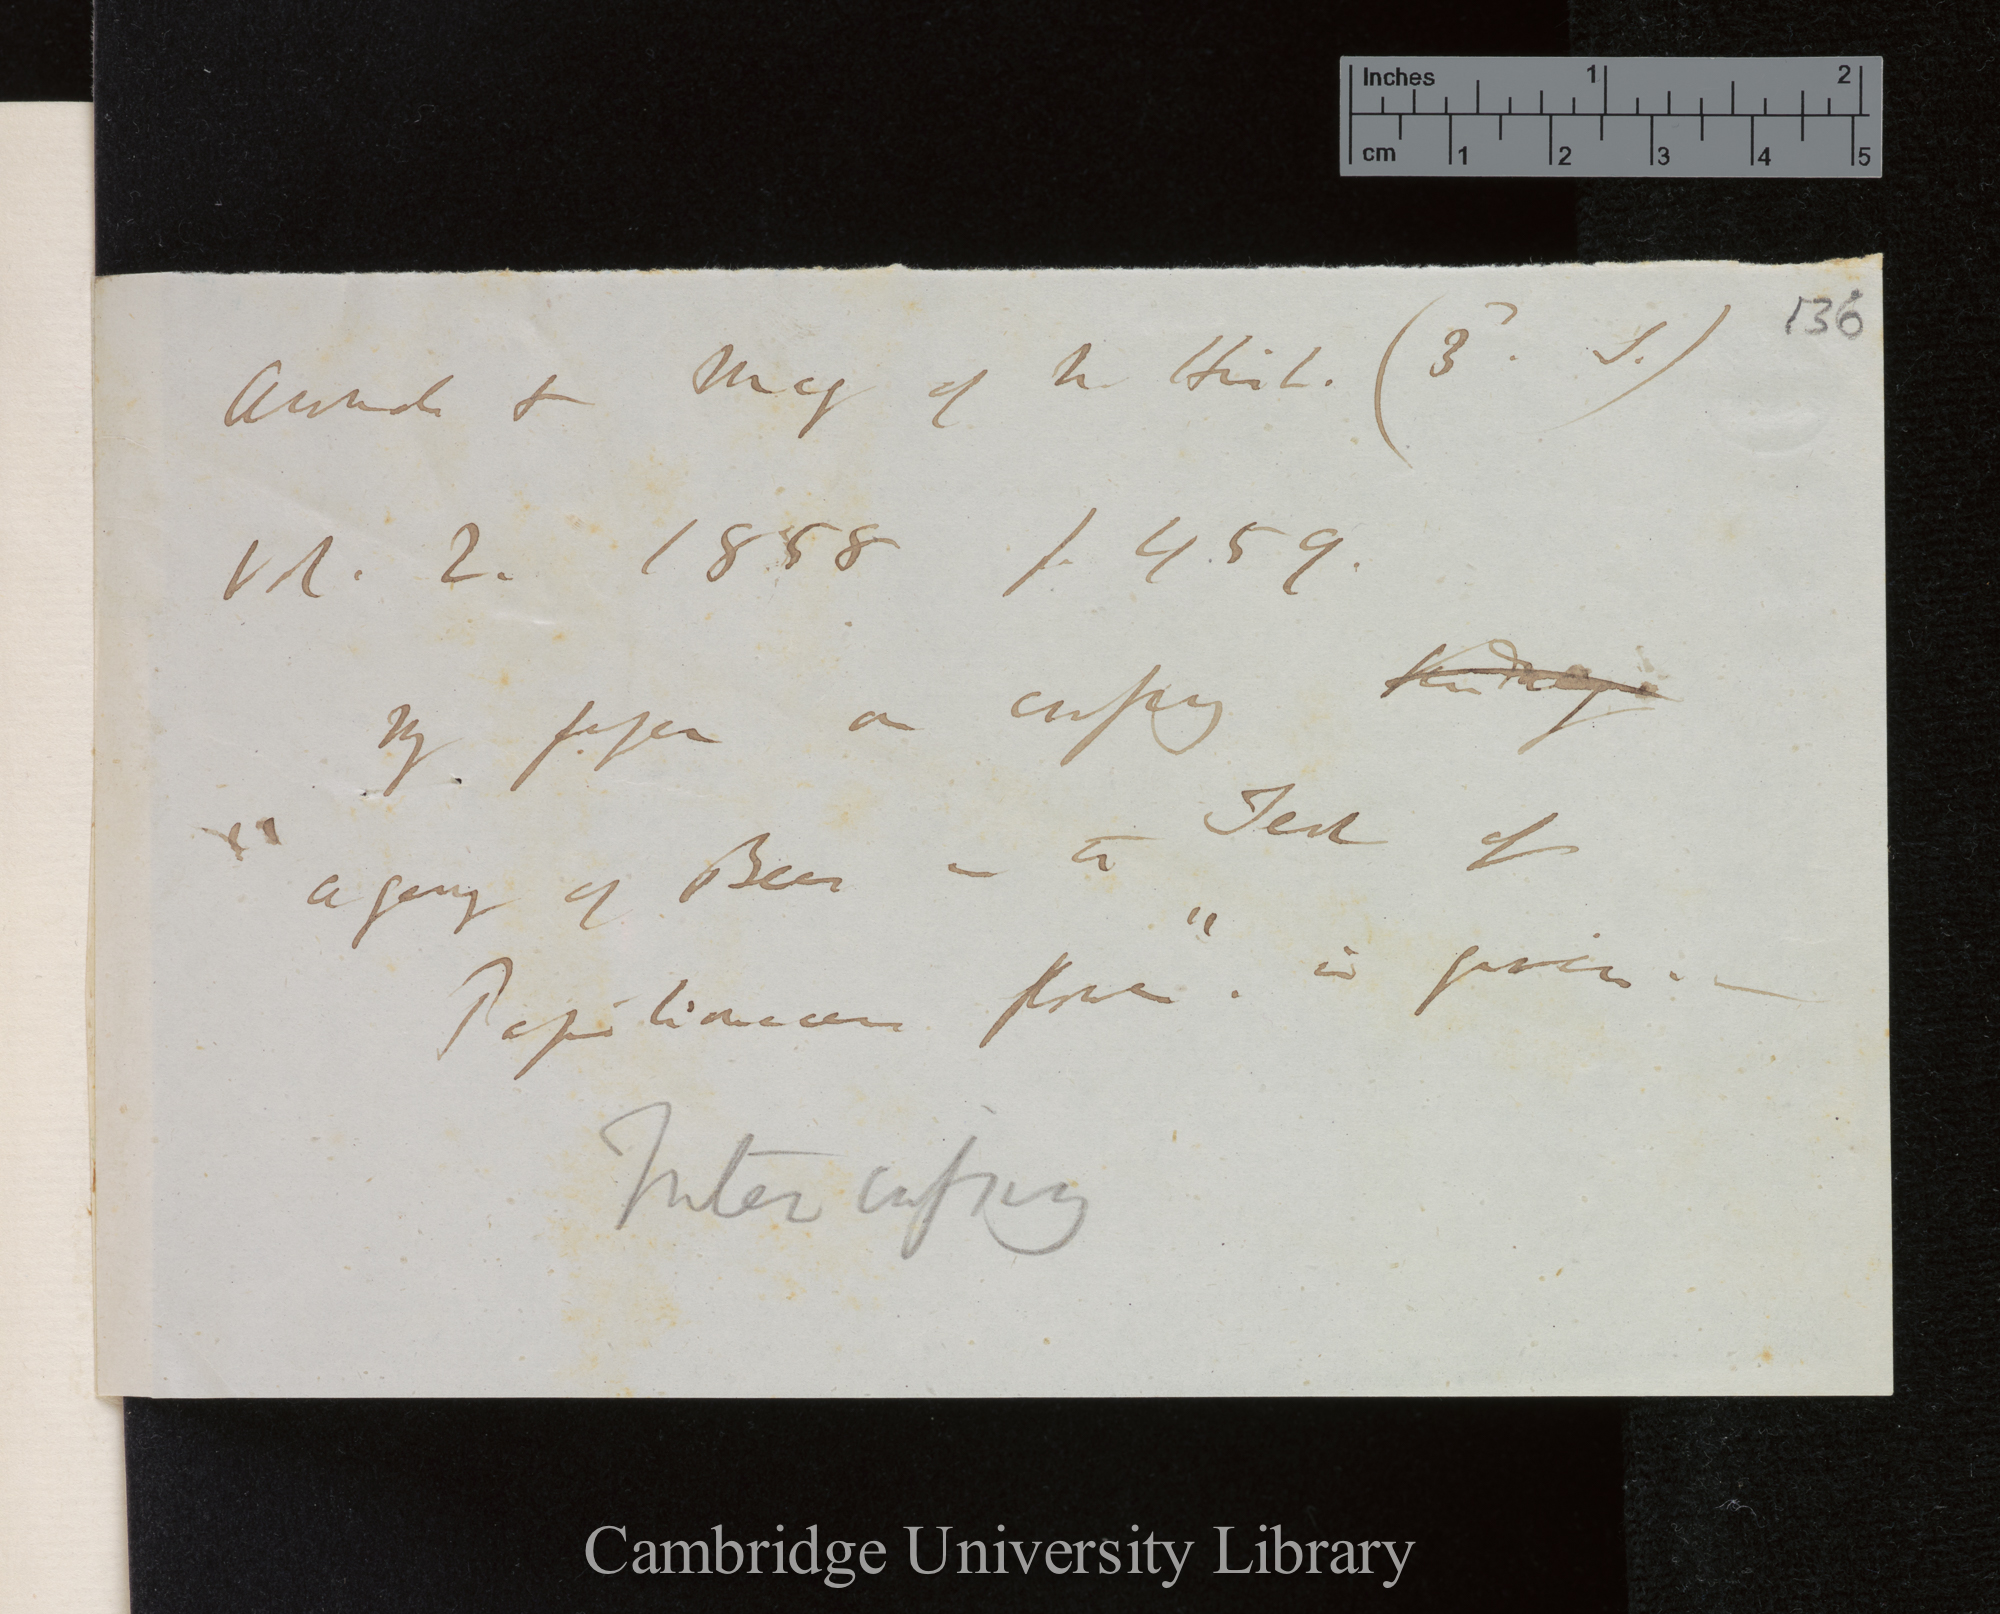 Inches 1 2
cm 1 2 3 4 5
136
Annals & Mag of N. Hist. (3d. S.)
Vol. 2. 1858 p. 459.
My paper on crossing
"Agency of Bees in the Fert of
Papilionaceous flowers". is given. —
Inter crossing
Cambridge University Library